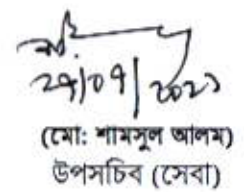 ২৭/০৭/২০২১
(মো: শামসুল আলম)
উপসচিব (সেবা)